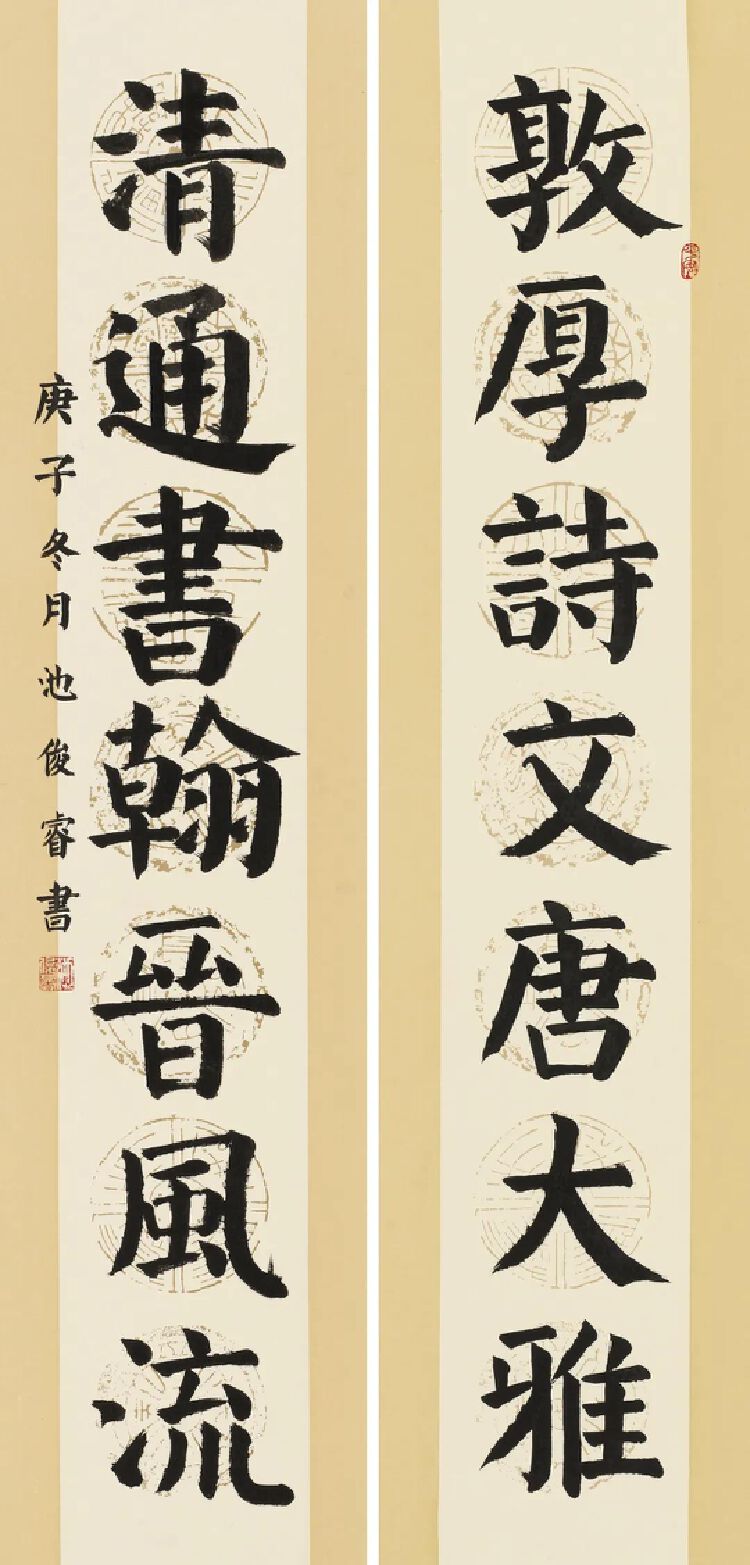 敦厚詩文唐大雅
清通書翰晉風流
庚子冬月池俊睿書